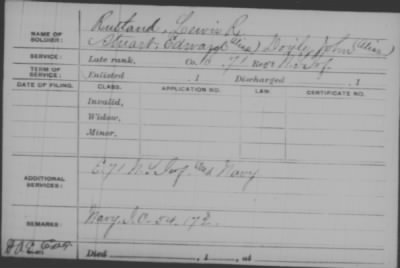 NAME OF SOLDIER: Rustland, Lewis R.
Stuart, Edward (Alias) Doyle, John (Alias)
SERVICE: Late rank, Co. 71 Reg't N.Y. Inf.
TERM OF SERVICE: Enlisted , 1 Discharged , 1
DATE OF FILING. CLASS. APPLICATION NO. LAW. CERTIFICATE NO.
Invalid,
Widow,
Minor,
ADDITIONAL SERVICES: C. 71 N.Y. Inf. and Navy
REMARKS: Navy I.C. 54.172.
Died , 1 , at